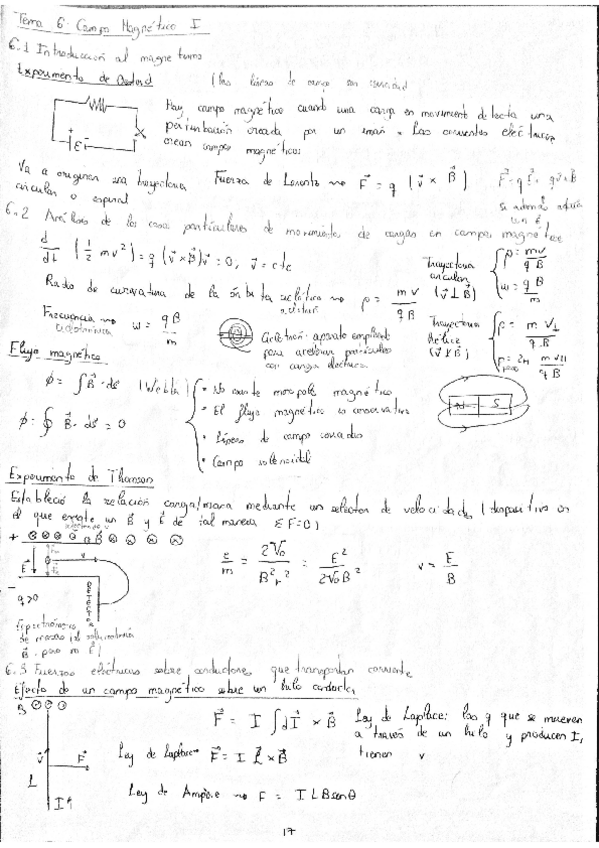 Tema 6: Campo Magnético I
6.1 Introducción al magnetismo
Experimento de Oersted (Las líneas de campo son cerradas)
Hay campo magnético cuando una carga en movimiento detecta una
ε perturbación creada por un imán. Las corrientes eléctricas
crean campos magnéticos
Va a originar una trayectoria circular o espiral
Fuerza de Lorentz → F = q (v × B) F = qE + qv×B
Se
un E
6.2 Análisis de los casos particulares de movimiento de cargas en campo magnético
d/dt (1/2 mv²) = q (v × B)v = 0, v = cte
Radio de curvatura de la órbita → ρ = mv/qB
Frecuencia ciclotrónica → ω = qB/m
Ciclotrón: aparato empleado
para acelerar partículas
con carga eléctrica
Trayectoria circular (v ⊥ B) { ρ = mv/qB ω = qB/m
Trayectoria hélice { ρ = m v⊥/qB
p paso = 2π m v||/qB
Flujo magnético
φ = ∫ B · ds (Weber)
φ = ∮ B · ds = 0
· No existe monopolo magnético
· El flujo magnético es conservativo
· Líneas de campo cerradas
· Campo solenoidal
N S
Experimento de Thomson
Estableció la relación carga/masa mediante un selector de velocidades (dispositivo en
el que existe un B y E de tal manera ΣF=0)
+
E v
- q>0
DETECTOR
e/m = 2V₀/B²r² = E²/2V₀B² v = E/B
Espectrómetro
de masas
B, pero no E)
6.3 Fuerzas eléctricas sobre conductores que transportan corriente
Efecto de un campo magnético sobre un hilo conductor
B
v F
L
I↑
F = I ∫ dl × B Ley de Laplace: las q que se mueven
a través de un hilo y producen I,
tienen v
Ley de Laplace → F = I L × B
Ley de Ampère → F = I L B senθ
17